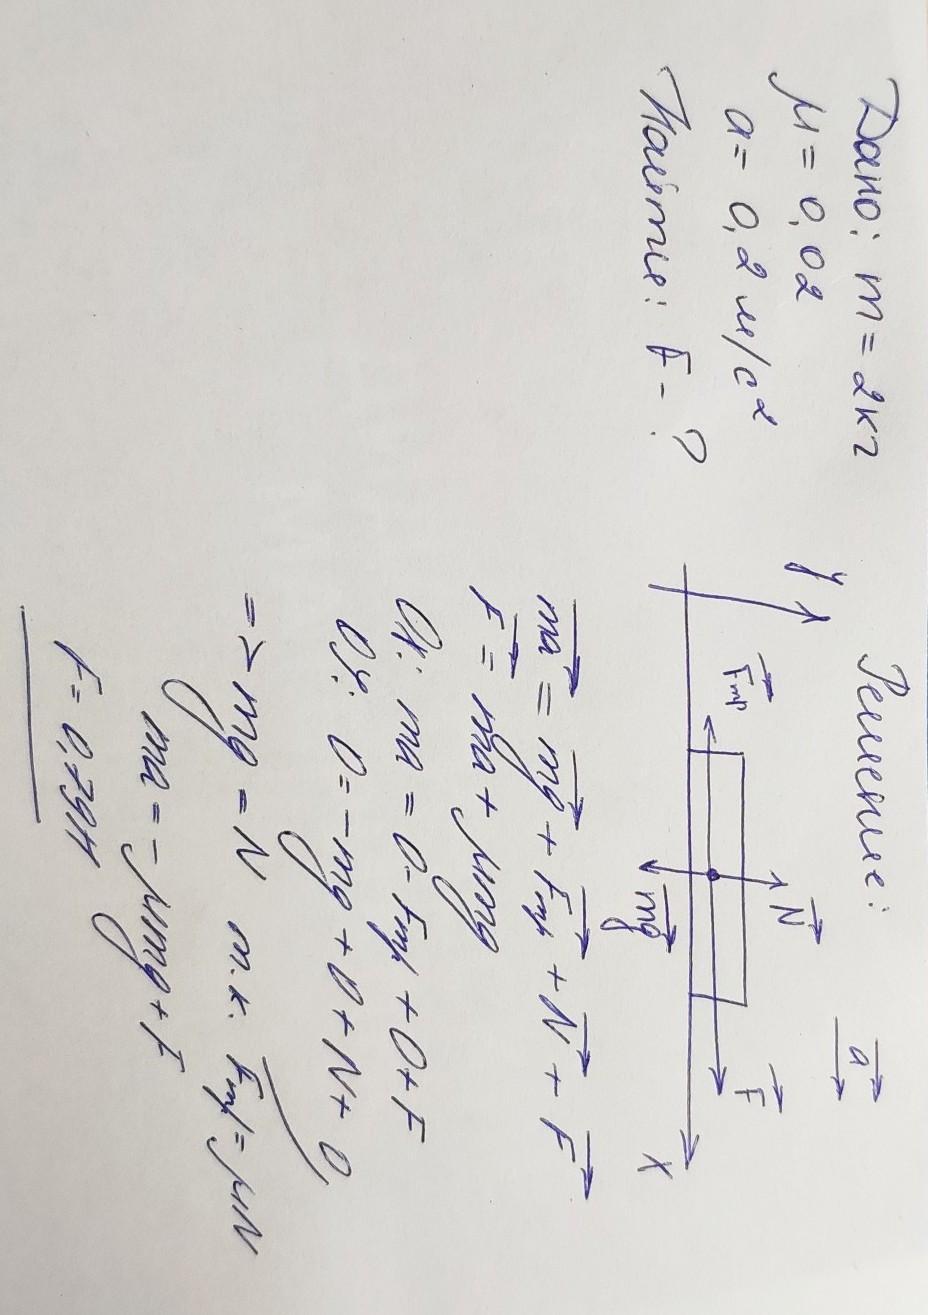 Дано: m = 2кг
μ = 0,02
a = 0,2 м/с²
Найти: F - ?
Решение:
a
y
Fтр
N
F
mg
x
ma = mg + Fтр + N + F
F = ma + μmg
Ox: ma = 0 - Fтр + 0 + F
Oy: 0 = -mg + 0 + N + 0
=> mg = N т.к. Fтр = μN
ma = -μmg + F
F = 0,79Н